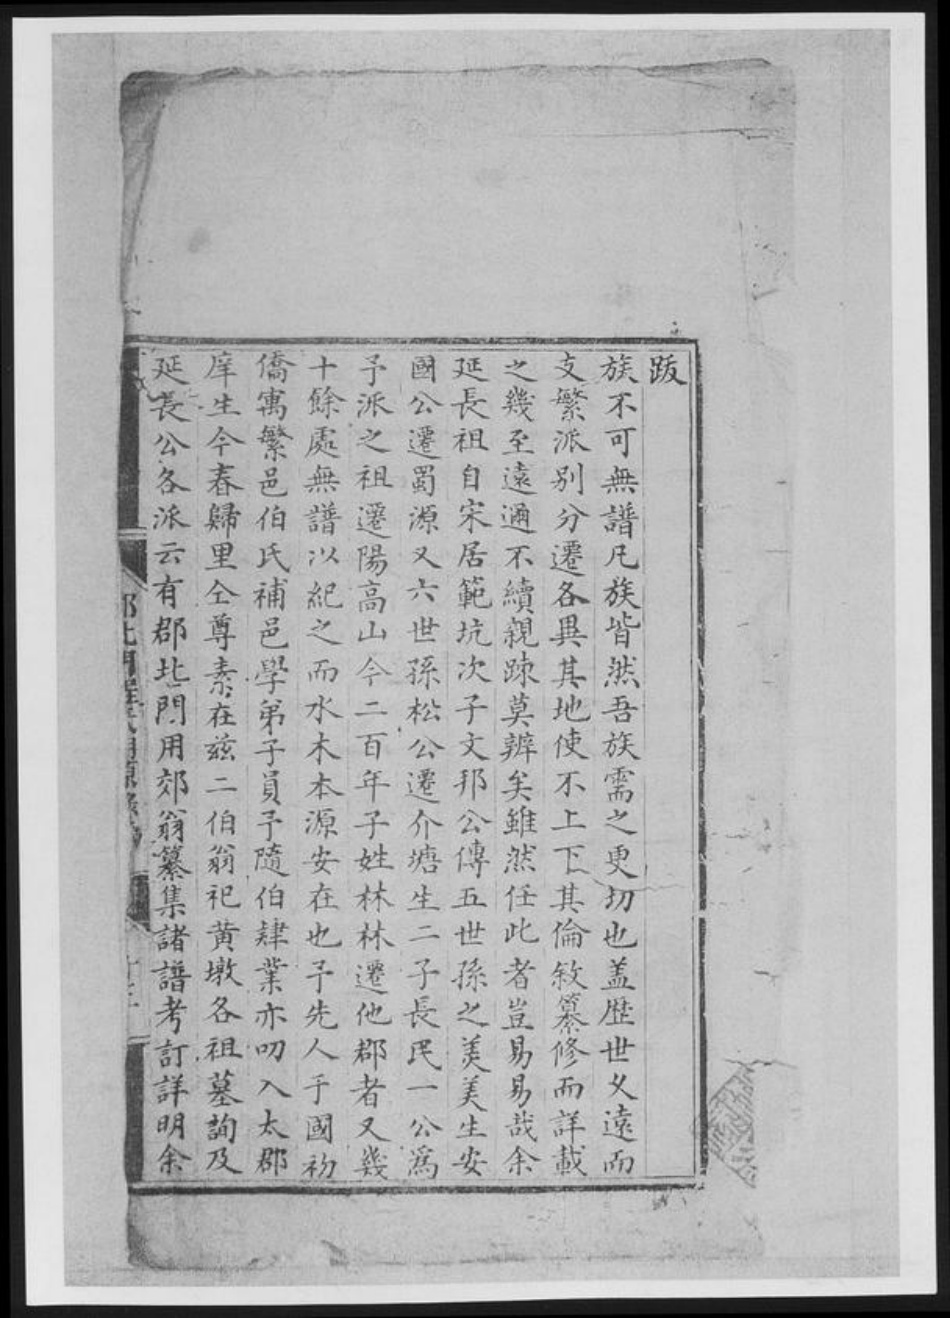 跋
族不可無譜凡族皆然吾族需之更切也盖歴世夂遠而
支繁派别分遷各異其地使不上下其倫敘纂修而詳載
之幾至遠邇不續親踈莫辨矣雖然任此者豈易易哉余
延長祖自宋居範坑次子文邦公傳五世孫之美美生安
國公遷蜀源又六世孫松公遷介塘生二子長民一公爲
予派之祖遷陽高山今二百年子姓林林遷他郡者又幾
十餘處無譜以紀之而水木本源安在也予先人于國初
僑寓繁邑伯氏補邑學弟子員予隨伯肄業亦叨入太郡
庠生今春歸里仝尊素在兹二伯翁祀黄墩各祖墓詢及
延長公各派云有郡北門用郊翁纂集諸譜考訂詳明余